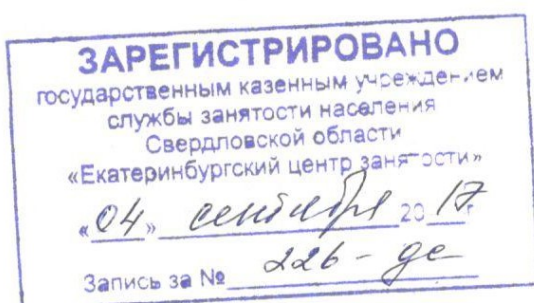 ЗАРЕГИСТРИРОВАНО
государственным казенным учреждением
службы занятости населения
Свердловской области
«Екатеринбургский центр занятости»
«04» сентября 2017 г
Запись за № 226 - де